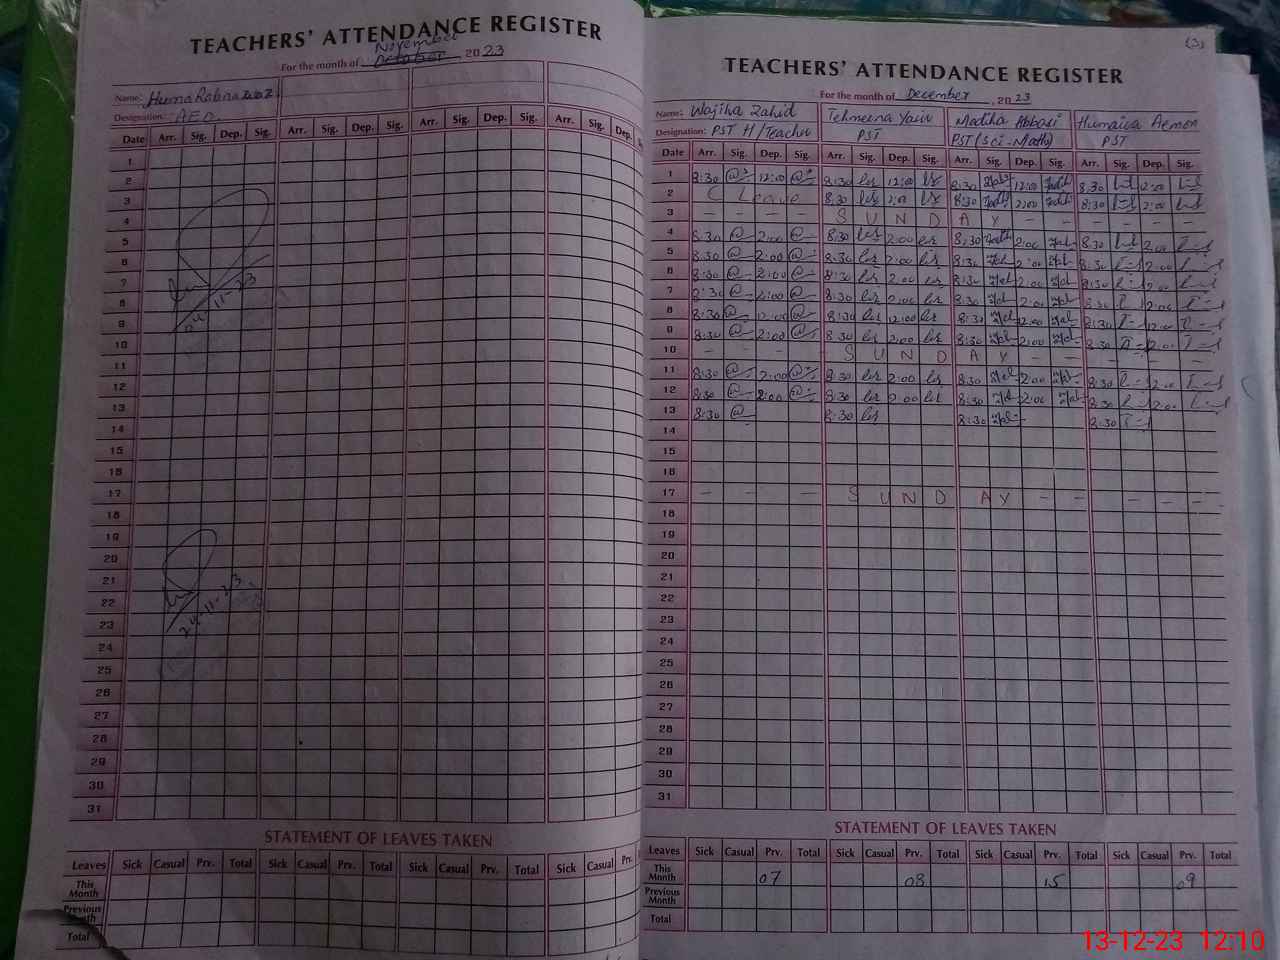 TEACHERS' ATTENDANCE REGISTER
November
For the month of October 2023
Name: Huma Rabnawaz
Designation: AEO
Date Arr. Sig. Dep. Sig. Arr. Sig. Dep. Sig. Arr. Sig. Dep. Sig. Arr. Sig. Dep.
1
2
3
4
5
6
7
8
9
10
11
12
13
14
15
16
17
18
19
20
21
22
23
24
25
26
27
28
29
30
31
24-11-23
24-11-23
STATEMENT OF LEAVES TAKEN
Leaves Sick Casual Prv. Total Sick Casual Prv. Total Sick Casual Prv. Total Sick Casual Prv.
This Month
Previous Month
Total
(3)
TEACHERS' ATTENDANCE REGISTER
For the month of December, 2023
Name: Wajiha Zahid Tehmeena Yasir Madiha Abbasi Humaira Aemen
Designation: PST H/Teacher PST PST (Sci-Math) PST
Date Arr. Sig. Dep. Sig. Arr. Sig. Dep. Sig. Arr. Sig. Dep. Sig. Arr. Sig. Dep. Sig.
1 8:30 12:00 8:30 12:00 8:30 12:00 8:30 2:00
2 C Leave 8:30 2:00 8:30 2:00 8:30 2:00
3 - - - - S U N D A Y - - - - - -
4 8:30 2:00 8:30 2:00 8:30 2:00 8:30 2:00
5 8:30 2:00 8:30 2:00 8:30 2:00 8:30 2:00
6 8:30 2:00 8:30 2:00 8:30 2:00 8:30 2:00
7 8:30 2:00 8:30 2:00 8:30 2:00 8:30 2:00
8 8:30 12:00 8:30 12:00 8:30 12:00 8:30 12:00
9 8:30 2:00 8:30 2:00 8:30 2:00 8:30 2:00
10 - - - - S U N D A Y - - - - - -
11 8:30 2:00 8:30 2:00 8:30 2:00 8:30 2:00
12 8:30 2:00 8:30 2:00 8:30 2:00 8:30 2:00
13 8:30 8:30 8:30 8:30
14
15
16
17 - - - S U N D A Y - - - - -
18
19
20
21
22
23
24
25
26
27
28
29
30
31
STATEMENT OF LEAVES TAKEN
Leaves Sick Casual Prv. Total Sick Casual Prv. Total Sick Casual Prv. Total Sick Casual Prv. Total
This Month 07 08 15 09
Previous Month
Total
13-12-23 12:10